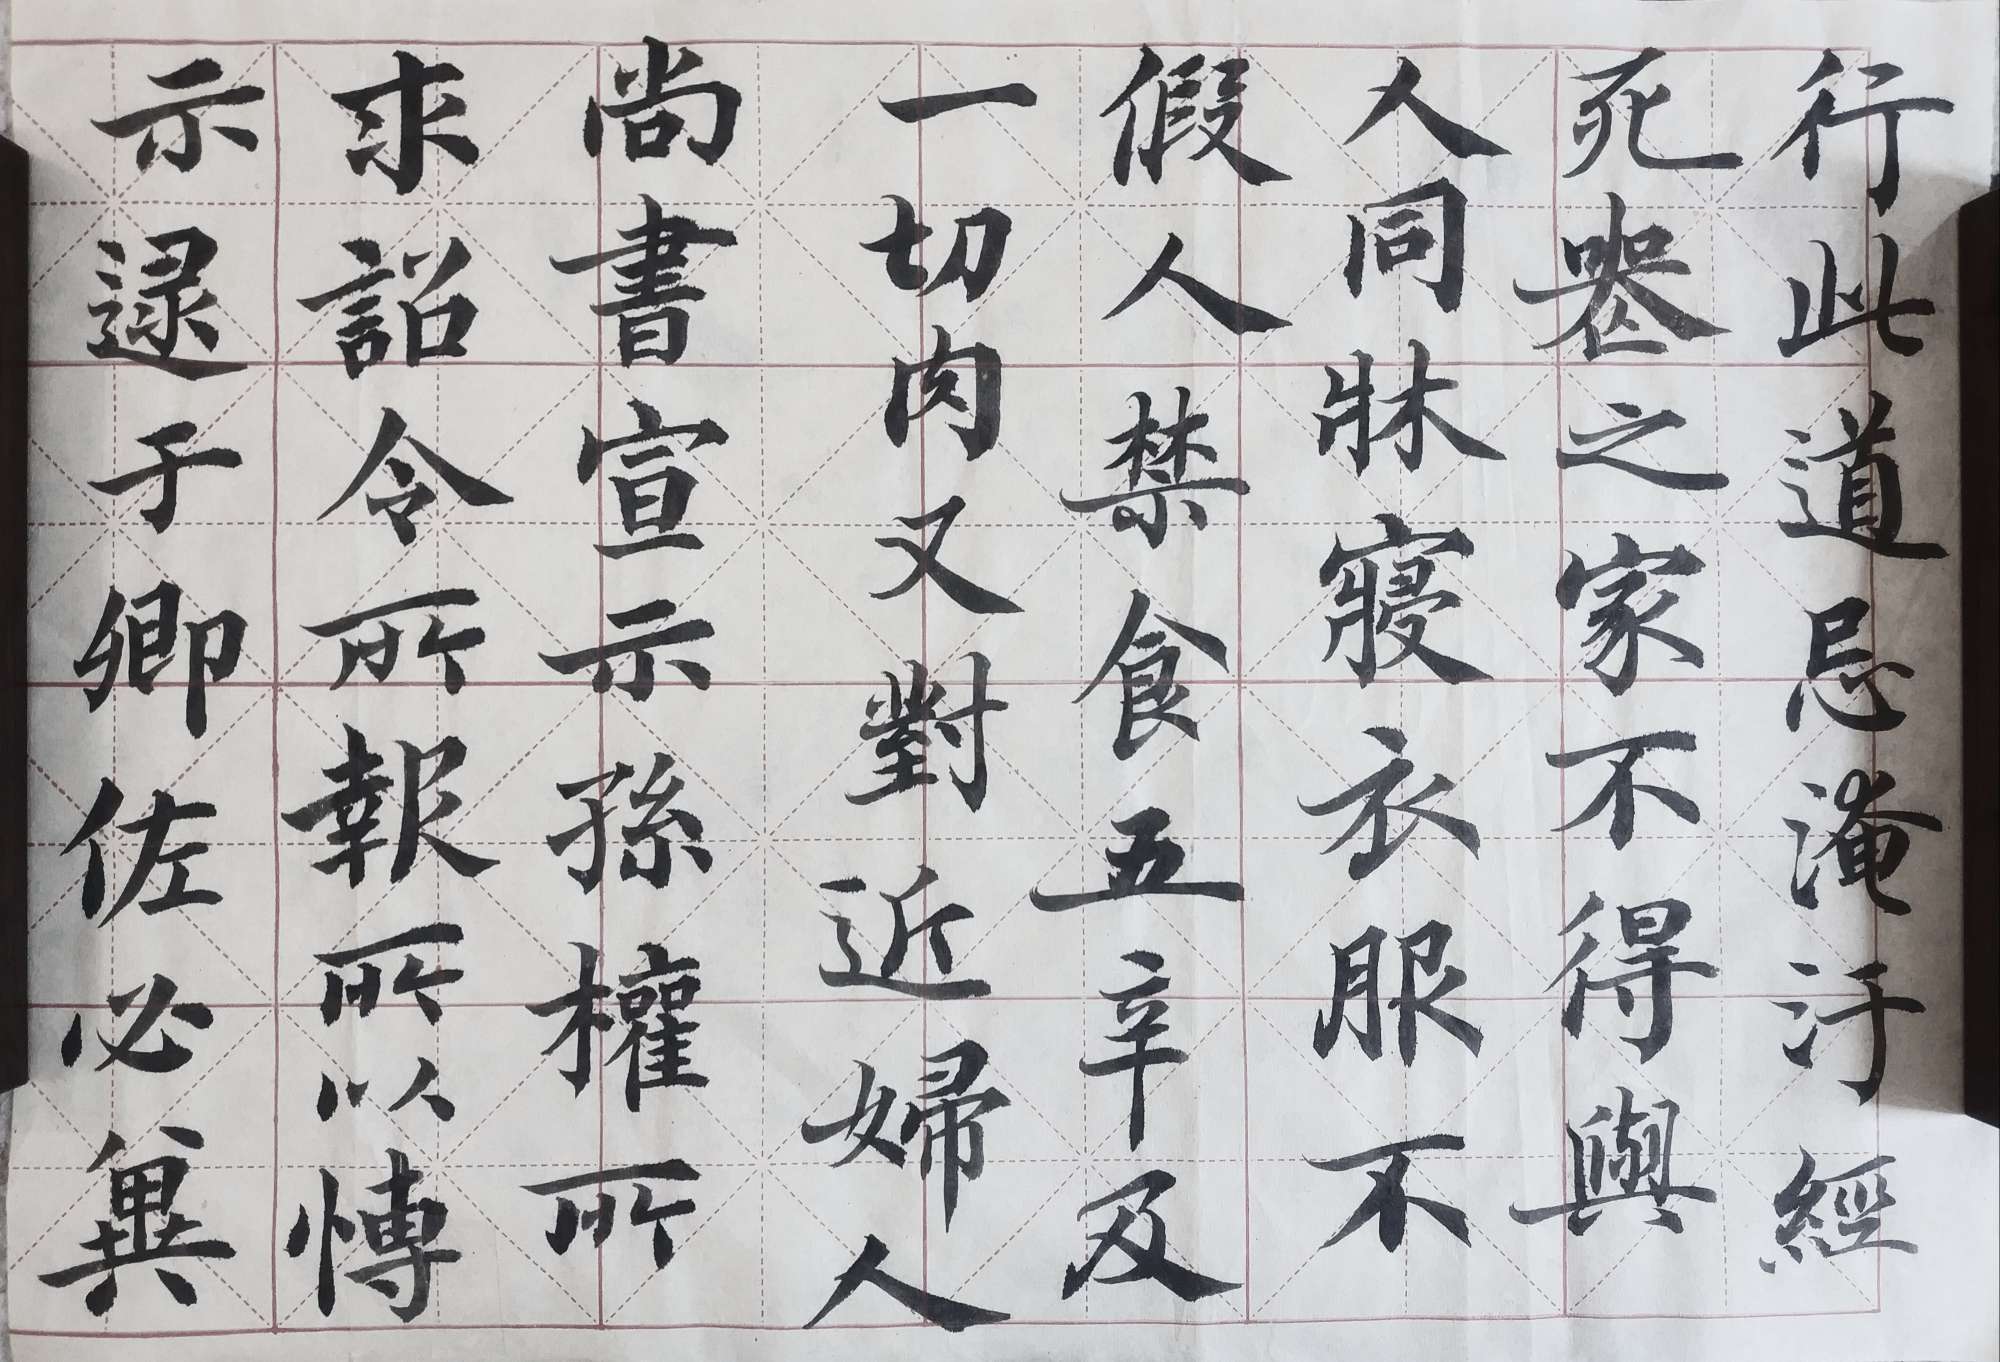 行此道忌淹汙經
死喪之家不得與
人同牀寢衣服不
假人禁食五辛及
一切肉又對近婦人
尚書宣示孫權所
求詔令所報所以博
示逮于卿佐必冀